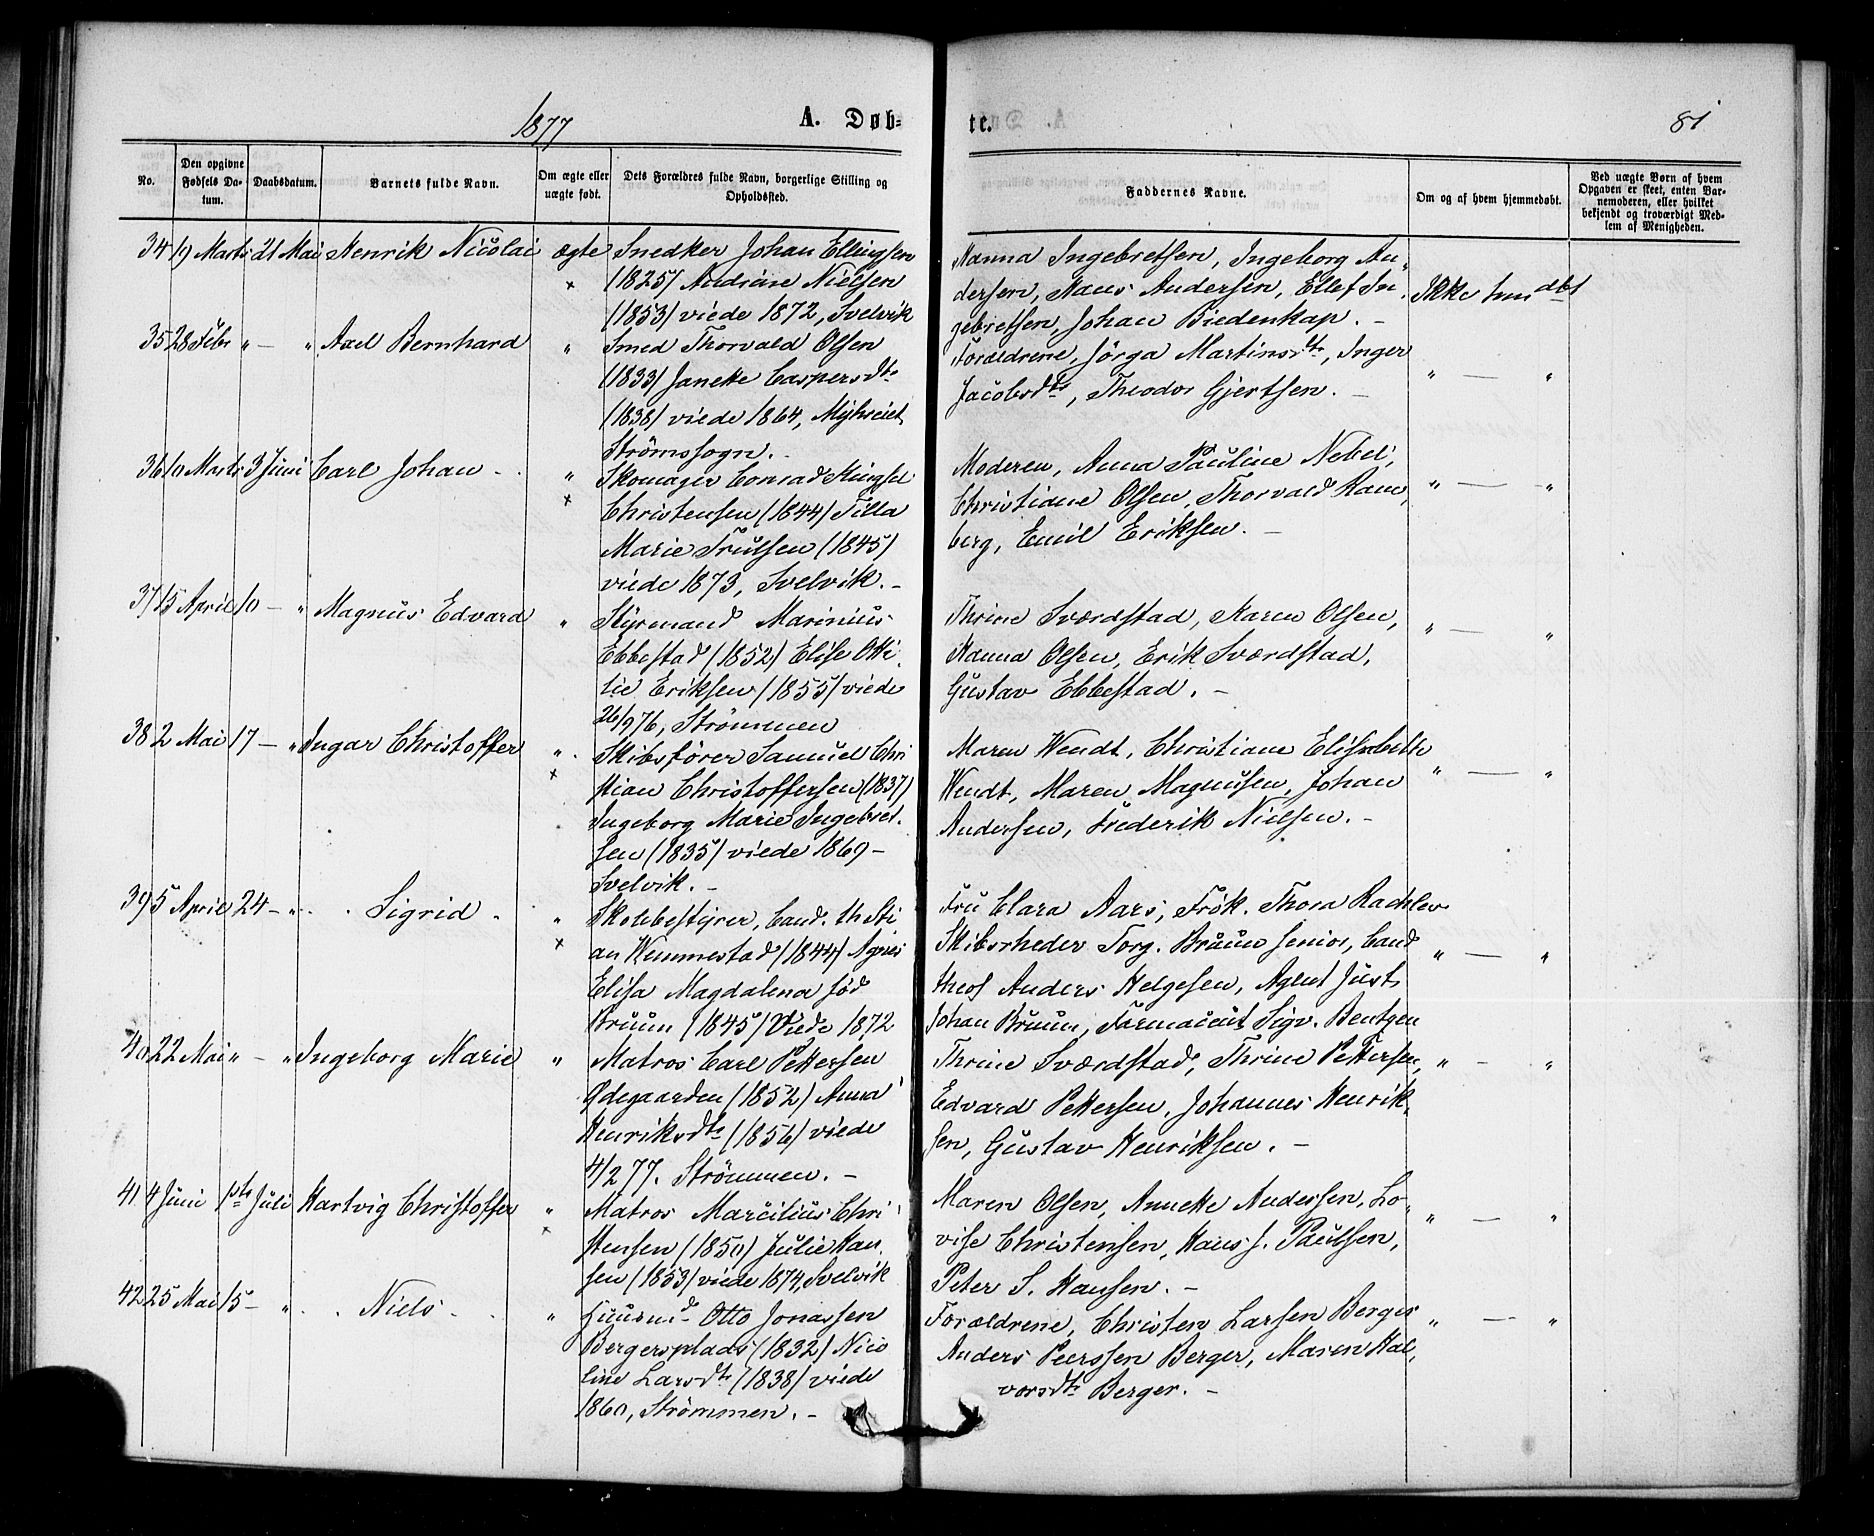 1877
A. Døb-
te.
81
No.
Den opgivne Fødsels Da-tum.
Daabsdatum.
Barnets fulde Navn.
Om ægte eller uægte født.
Dets Forældres fulde Navn, borgerlige Stilling og Opholdssted.
Faddernes Navne.
Om og af hvem hjemmedøbt.
Ved uægte Børn af hvem Opgaven er skeet, enten Bar-nemoderen, eller hvilket bekjendt og troværdigt Med-lem af Menigheden.
34 19 Marts 21 Mai Henrik Nicolai ægte Snedker Johan Ellingsen
× (1825) Andrine Nielsen
(1853) viede 1872, Svelvik
Hanna Ingebretsen, Ingeborg An-
dersen, Hans Andersen, Ellef In-
gebretsen, Johan Biedenkap. –
Ikke hmdbt
35 28 Febr " — " Axel Bernhard " Smed Thorvald Olsen
(1833) Janette Caspersdtr
(1838) viede 1864, Myhreiet
Strømssogn. -
Forældrene, Jörga Martinsdtr, Inger
Jacobsdtr, Theodor Gjertsen. –
" — "
36 10 Marts 3 Juni Carl Johan " Skomager Conrad
× Christensen (1844) Tilla
Marie Trulsen (1845)
viede 1873, Svelvik. –
Moderen, Anna Pauline Nebel,
Christiane Olsen, Thorvald Ram
berg, Emil Eriksen. –
" — "
37 15 April 10 — " Magnus Edvard " Styrmand Marinius
Ebbestad (1852) Elise Otti
lie Eriksen (1855) viede
26/9 76, Strömmen
Thrine Sværdstad, Karen Olsen,
Hanna Olsen, Erik Sværdstad,
Gustav Ebbestad. –
" — "
38 2 Mai 17 — " Ingar Christoffer " Skibsförer Samuel Chri
× stian Christoffersen (1837)
Ingeborg Marie Ingebret.
sen (1835) viede 1869 –
Svelvik. –
Maren Wendt, Christiane Elisabeth
Wendt, Maren Magnusen, Johan
Andersen, Frederik Nielsen. –
" — "
39 5 April 24 — " Sigrid " Skolebestyrer, Cand. th Sti
× an Wemmestad (1844) Agnes
Elisa Magdalena fød
Bruun (1845) Viede 1872
Fru Clara Aars, Frök. Thora Rachlev
Skibsrheder Torg. Bruun senior, Cand
theol Anders Helgesen, Agent Just
Johan Bruun, Farmaceut Sigv. Bentzen
" — "
40 22 Mai " — " Ingeborg Marie " Matros Carl Pettersen
Ødegaarden (1852) Anna
Henriksdtr (1856) viede
4/2 77. Strömmen. –
Thrine Sværdstad, Thrine Pettersen,
Edvard Pettersen, Johannes Henrik-
sen, Gustav Henriksen. –
" — "
41 4 Juni 1ste Juli Hartvig Christoffer " Matros Marcilius Chri
× stensen (1850) Julie Han
sen (1853) viede 1874, Svelvik
Maren Olsen, Annette Andersen, Lo-
vise Christensen, Hans J. Paulsen,
Peter S. Hansen. –
" — "
42 25 Mai 15 — " Niels " Huusmd Otto Jonassen
Bergersplads (1832) Nico
line Larsdtr (1838) viede
1860, Strömmen. –
Forældrene, Christen Larsen Berger
Anders Peerssen Berger, Maren Hal,
vorsdtr Berger. –
" — "